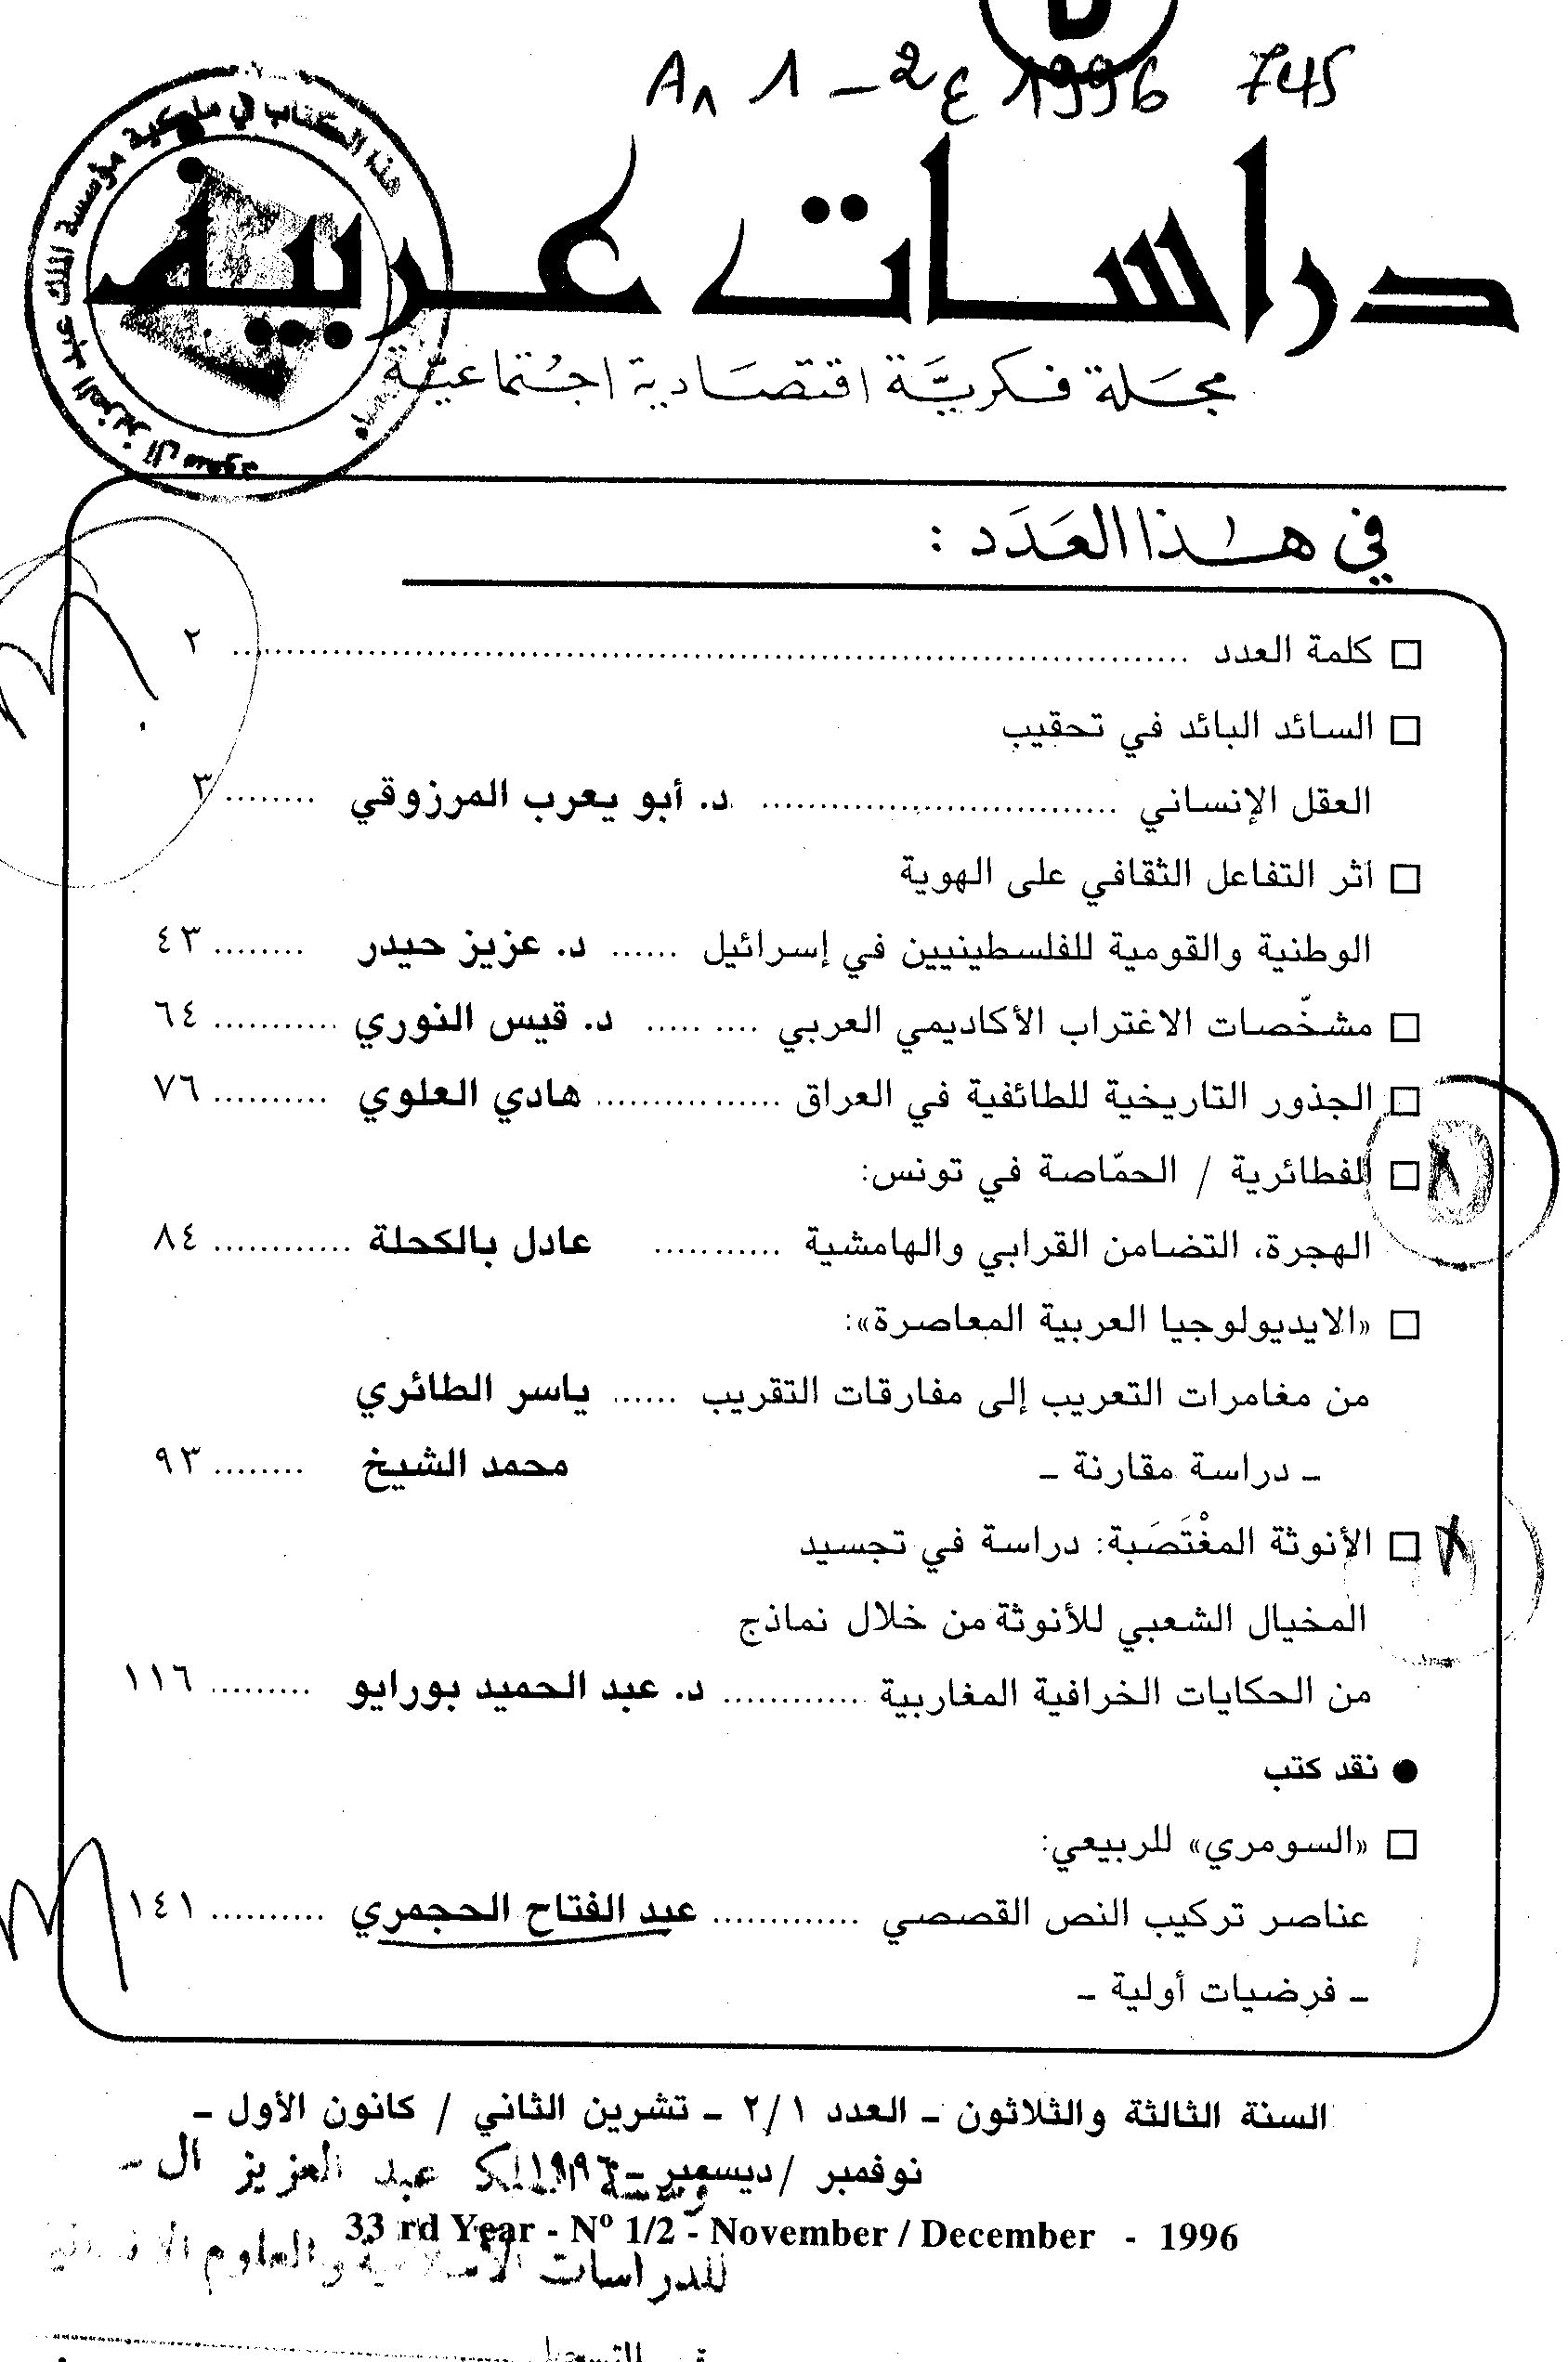 A٨ 1 - 2 ع 1996 745
هذا الكتاب في ملكية مؤسسة الملك عبد العزيز آل سعود
دراسات عربية
مجلة فكريَّة اقتصَادية اجتماعيَّة
في هٰذا العَدَد :
□ كلمة العدد ........ ٢
□ السائد البائد في تحقيب
العقل الإنساني ........ د. أبو يعرب المرزوقي ........ ٣
□ اثر التفاعل الثقافي على الهوية
الوطنية والقومية للفلسطينيين في إسرائيل ...... د. عزيز حيدر ........ ٤٣
□ مشخّصات الاغتراب الأكاديمي العربي .... ..... د. قيس النوري ........... ٦٤
□ الجذور التاريخية للطائفية في العراق ................ هادي العلوي .......... ٧٦
□ الفطائرية / الحمّاصة في تونس:
الهجرة، التضامن القرابي والهامشية ........... عادل بالكحلة ............ ٨٤
□ «الايديولوجيا العربية المعاصرة»:
من مغامرات التعريب إلى مفارقات التقريب ...... ياسر الطائري
ـ دراسة مقارنة ـ محمد الشيخ ........ ٩٣
□ الأنوثة المغْتَصَبة: دراسة في تجسيد
المخيال الشعبي للأنوثة من خلال نماذج
من الحكايات الخرافية المغاربية ............. د. عبد الحميد بورايو ......... ١١٦
● نقد كتب
□ «السومري» للربيعي:
عناصر تركيب النص القصصي ............. عبد الفتاح الحجمري .......... ١٤١
ـ فرضيات أولية ـ
السنة الثالثة والثلاثون ـ العدد ١/٢ ـ تشرين الثاني / كانون الأول ـ
نوفمبر / ديسمبر - ١٩٩٦
عبد العزيز ال -
33 rd Year - Nº 1/2 - November / December - 1996
للدراسات الاسلامية والعلوم